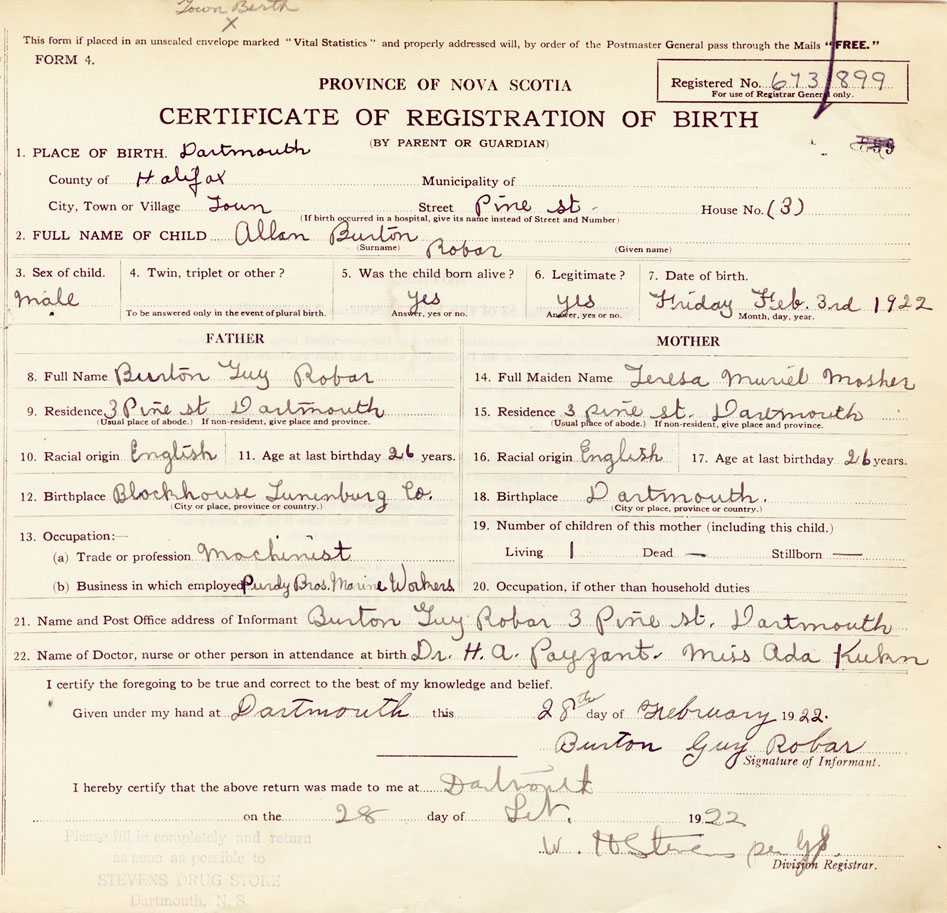 Town Birth
X
This form if placed in an unsealed envelope marked "Vital Statistics" and properly addressed will, by order of the Postmaster General pass through the Mails "FREE."
FORM 4.
Registered No. 673899
For use of Registrar General only.
PROVINCE OF NOVA SCOTIA
CERTIFICATE OF REGISTRATION OF BIRTH
(BY PARENT OR GUARDIAN)
1. PLACE OF BIRTH. Dartmouth
County of Halifax Municipality of
City, Town or Village Town Street Pine st. House No. (3)
(If birth occurred in a hospital, give its name instead of Street and Number)
2. FULL NAME OF CHILD Allan Burton Robar
(Surname) (Given name)
3. Sex of child. 4. Twin, triplet or other? 5. Was the child born alive? 6. Legitimate? 7. Date of birth.
Male yes yes Friday Feb. 3rd 1922
To be answered only in the event of plural birth. Answer, yes or no. Answer, yes or no. Month, day, year.
FATHER MOTHER
8. Full Name Burton Guy Robar 14. Full Maiden Name Teresa Muriel Mosher
9. Residence 3 Pine st Dartmouth 15. Residence 3 pine st. Dartmouth
(Usual place of abode.) If non-resident, give place and province. (Usual place of abode.) If non-resident, give place and province.
10. Racial origin English 11. Age at last birthday 26 years. 16. Racial origin English 17. Age at last birthday 26 years.
12. Birthplace Blockhouse Lunenburg Co. 18. Birthplace Dartmouth.
(City or place, province or country.) (City or place, province or country.)
13. Occupation:— 19. Number of children of this mother (including this child.)
(a) Trade or profession Machinist Living 1 Dead — Stillborn —
(b) Business in which employed Purdy Bros. Marine Workers 20. Occupation, if other than household duties
21. Name and Post Office address of Informant Burton Guy Robar 3 Pine st. Dartmouth
22. Name of Doctor, nurse or other person in attendance at birth Dr. H. A. Payzant. Miss Ada Kuhn
I certify the foregoing to be true and correct to the best of my knowledge and belief.
Given under my hand at Dartmouth this 28th day of February 1922.
Burton Guy Robar
Signature of Informant.
I hereby certify that the above return was made to me at Dartmouth
on the 28 day of 1922
W. H Stevens per
Division Registrar.
Please fill in completely and return
as soon as possible to
STEVENS DRUG STORE
Dartmouth, N. S.